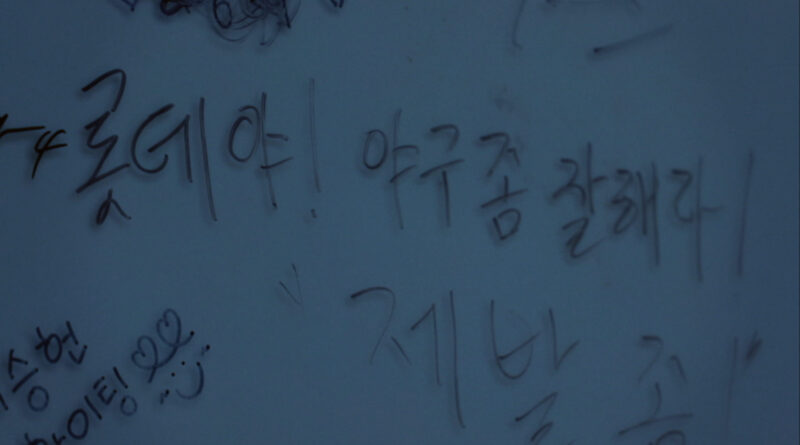 롯데야! 야구좀 잘해라!
"제발 좀!"
승현
파이팅♡♡